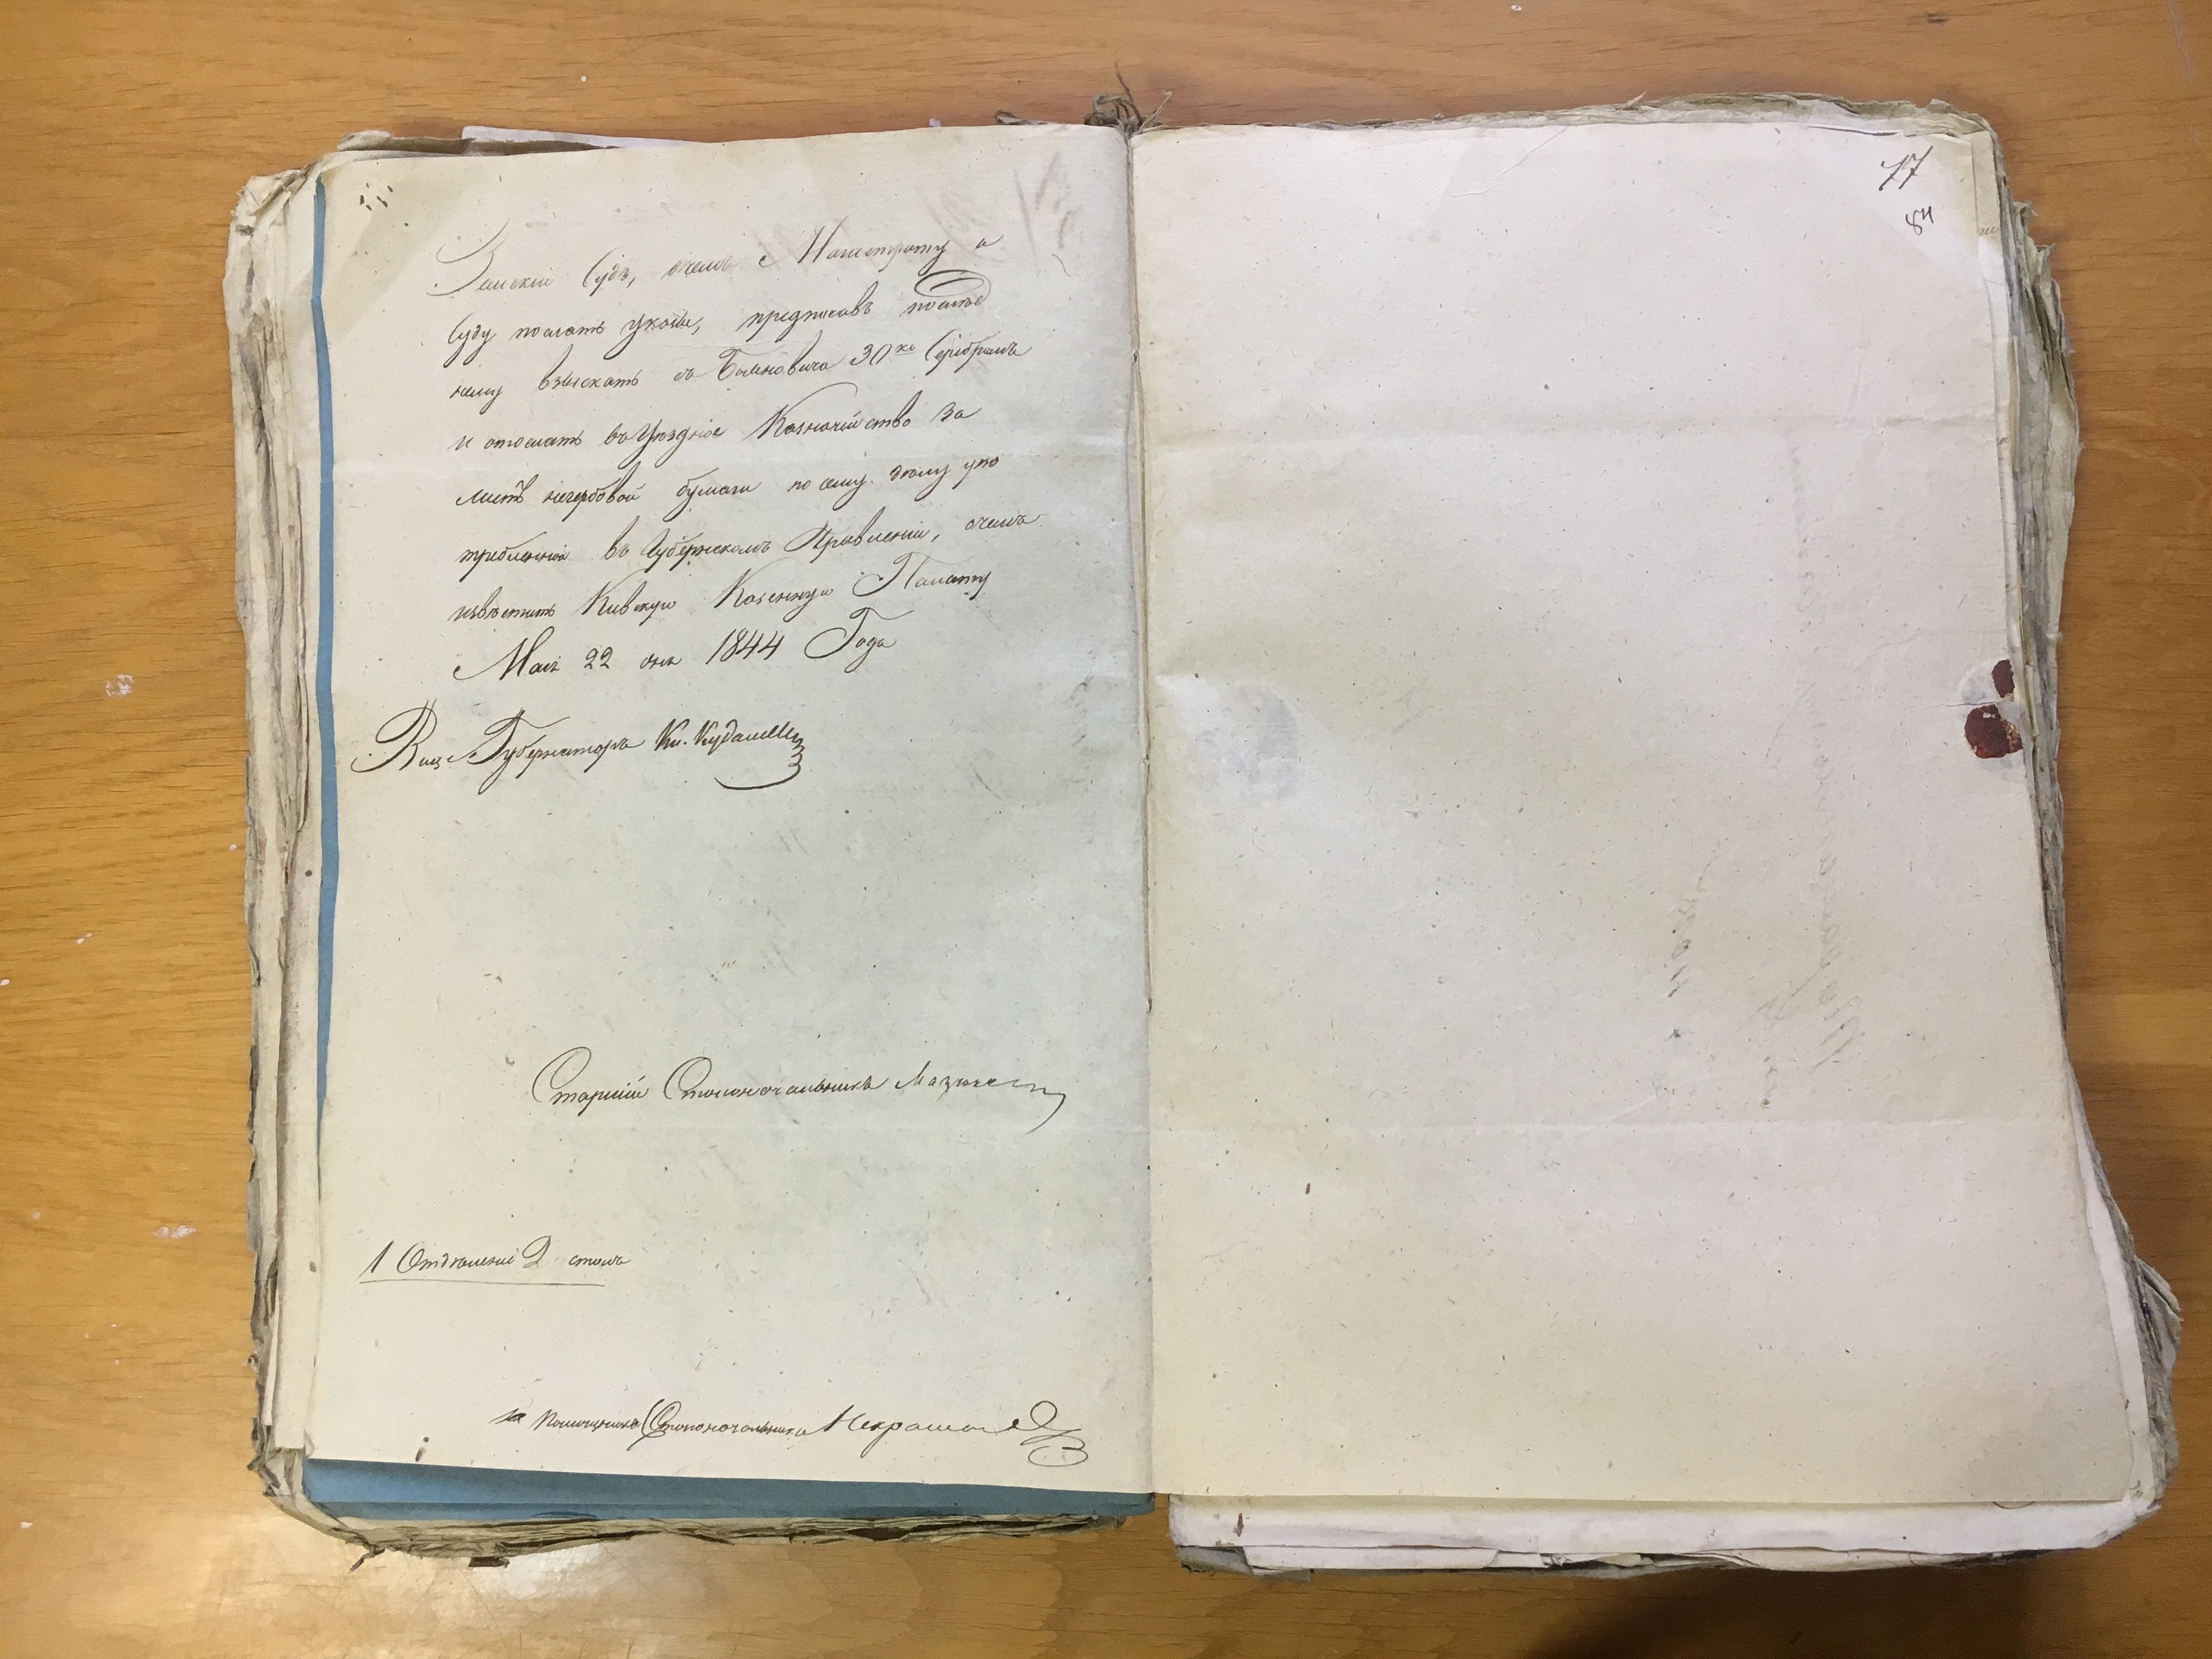 Земскій Судъ, о чемъ Магистрату и
Суду послать указы, предписавъ послѣд
нему взыскать съ 30 ко Серебромъ
и отослать въ Уѣздное Казначейство за
листъ негербовой бумаги по сему дѣлу упо
требленной въ Губернскомъ Правленіи, о чемъ
извѣстить Кіевскую Казенную Палату
Маія 22 дня 1844 Года
Виц Губернаторъ Кн. Кудашевъ
Старшій Столоначальникъ
1 Отдѣленіе 2 столъ
за Помощника Столоначальника
77
84